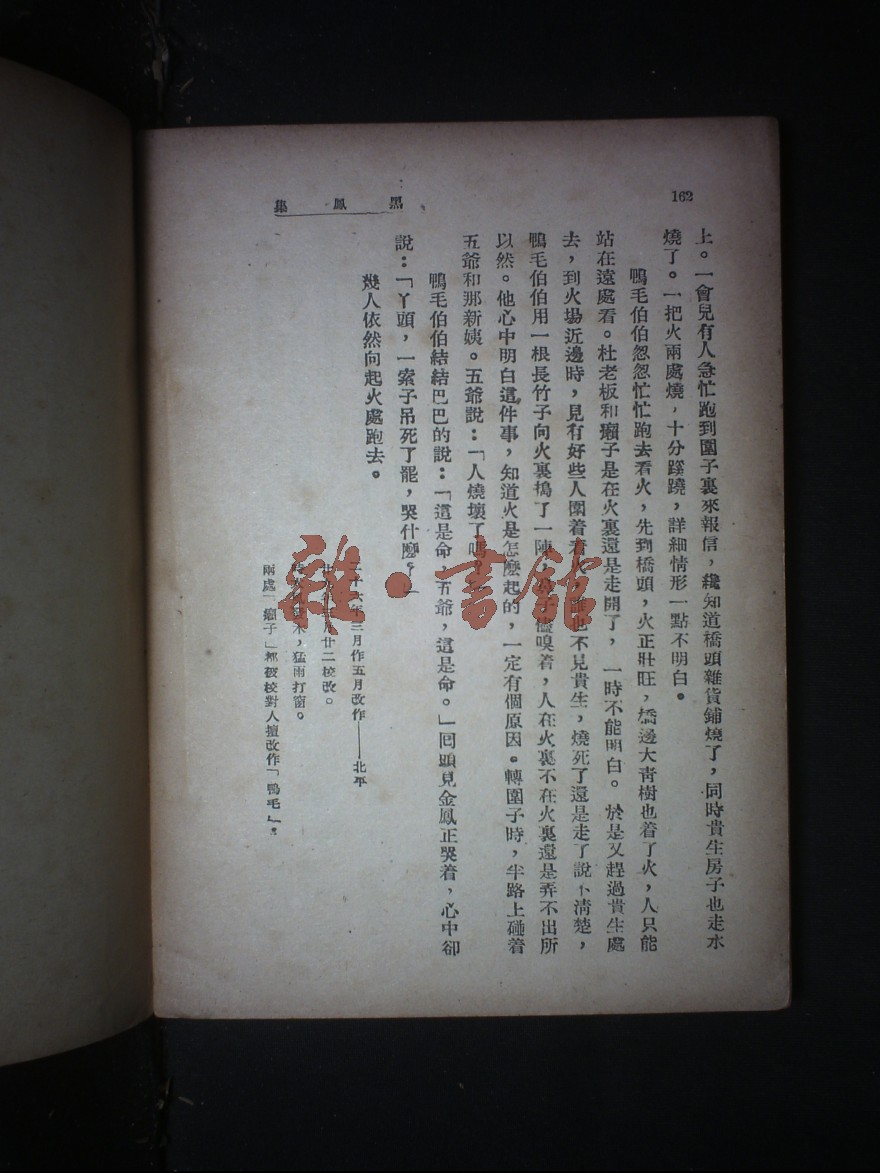 162
黑鳳集
上。一會兒有人急忙跑到圍子裏來報信，纔知道橋頭雜貨鋪燒了，同時貴生房子也走水
燒了。一把火兩處燒，十分蹊蹺，詳細情形一點不明白。
鴨毛伯伯怱怱忙忙跑去看火，先到橋頭，火正壯旺，橋邊大青樹也着了火，人只能
站在遠處看。杜老板和癩子是在火裏還是走開了，一時不能明白。於是又趕過貴生處
去，到火場近邊時，見有好些人圍着看火，誰也不見貴生，燒死了還是走了說不清楚，
鴨毛伯伯用一根長竹子向火裏搗了一陣，鼻子儘嗅着，人在火裏不在火裏還是弄不出所
以然。他心中明白這件事，知道火是怎麼起的，一定有個原因。轉圍子時，半路上碰着
五爺和那新姨。五爺說：「人燒壞了嗎？」
鴨毛伯伯結結巴巴的說：「這是命，五爺，這是命。」回頭見金鳳正哭着，心中卻
說：「丫頭，一索子吊死了罷，哭什麼？」
幾人依然向起火處跑去。
二十六年三月作五月改作——北平
月廿二校改。
，猛雨打窗。
兩處「癩子」都被校對人擅改作「鴨毛」。
雜·書館